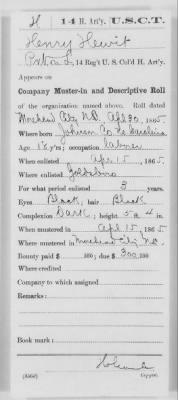 H 14 H. Art'y. U.S.C.T.
Henry Hewit
Pvt, Co. L, 14 Reg't U. S. Col'd H. Art'y.
Appears on
Company Muster-in and Descriptive Roll
of the organization named above. Roll dated
Morehead City N.C. Apl 30, 1865
Where born Johnson Co. No Carolina
Age 18 y'rs; occupation laborer
When enlisted Apr 15, 1865
Where enlisted Goldsboro
For what period enlisted 3 years.
Eyes Black; hair Black
Complexion Dark; height 5 ft. 4 in.
When mustered in Apl 15, 1865
Where mustered in Morehead City N.C.
Bounty paid $ 100; due $ 300 100
Where credited
Company to which assigned
Remarks:
Book mark:
(356d) Copyist.